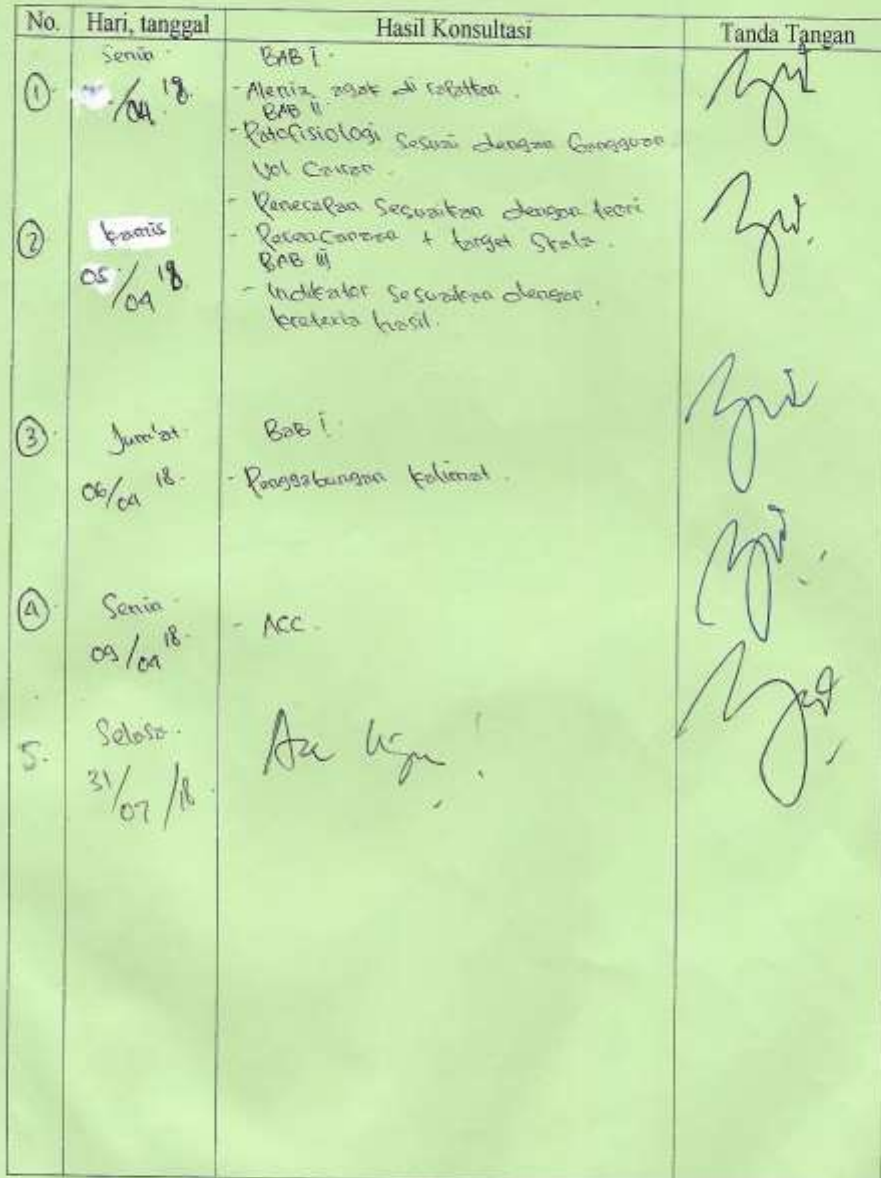 No. Hari, tanggal Hasil Konsultasi Tanda Tangan
Senin BAB I
① /04 18. - Alenia agak di rapatkan.
BAB II
- Patofisiologi Sesuai dengan Gangguan
Vol Cairan.
- Penerapan Sesuaikan dengan teori
② Kamis - Perencanaan + target Skala.
BAB III
05/04 18 - Indikator Sesuaikan dengan
kreteria hasil.
③ Jum'at. BAB I.
06/04 18. - Penggabungan kalimat.
④ Senin
09/04 18. - ACC.
5. Selasa.
31/07/18.